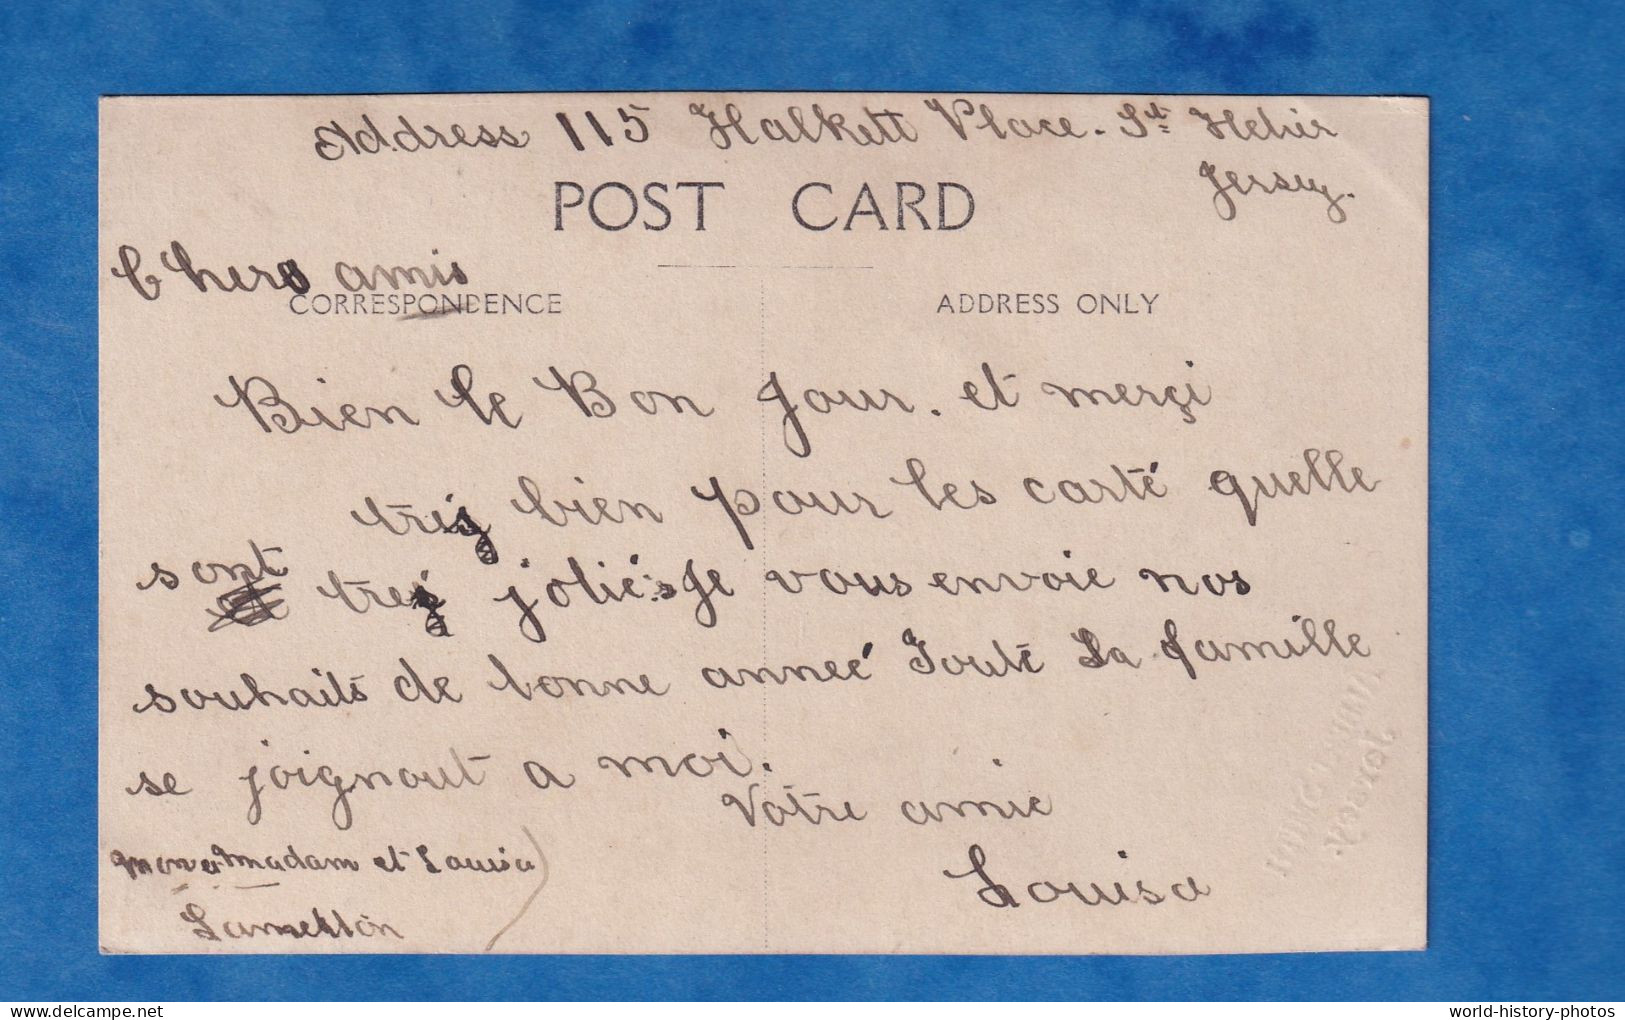 Address 115 Halkett Place. St Helier
Jersey.
POST CARD
Chers amis
CORRESPONDENCE
ADDRESS ONLY
Bien le Bon Jour. et merçi
tres bien pour les carté quelle
sont tres jolié.s Je vous envoie nos
souhaits de bonne anneé Touté La famille
se joignout a moi.
Votre amie
Louisa
Mon et Madam et Louisa
Jersey.
world-history-photos